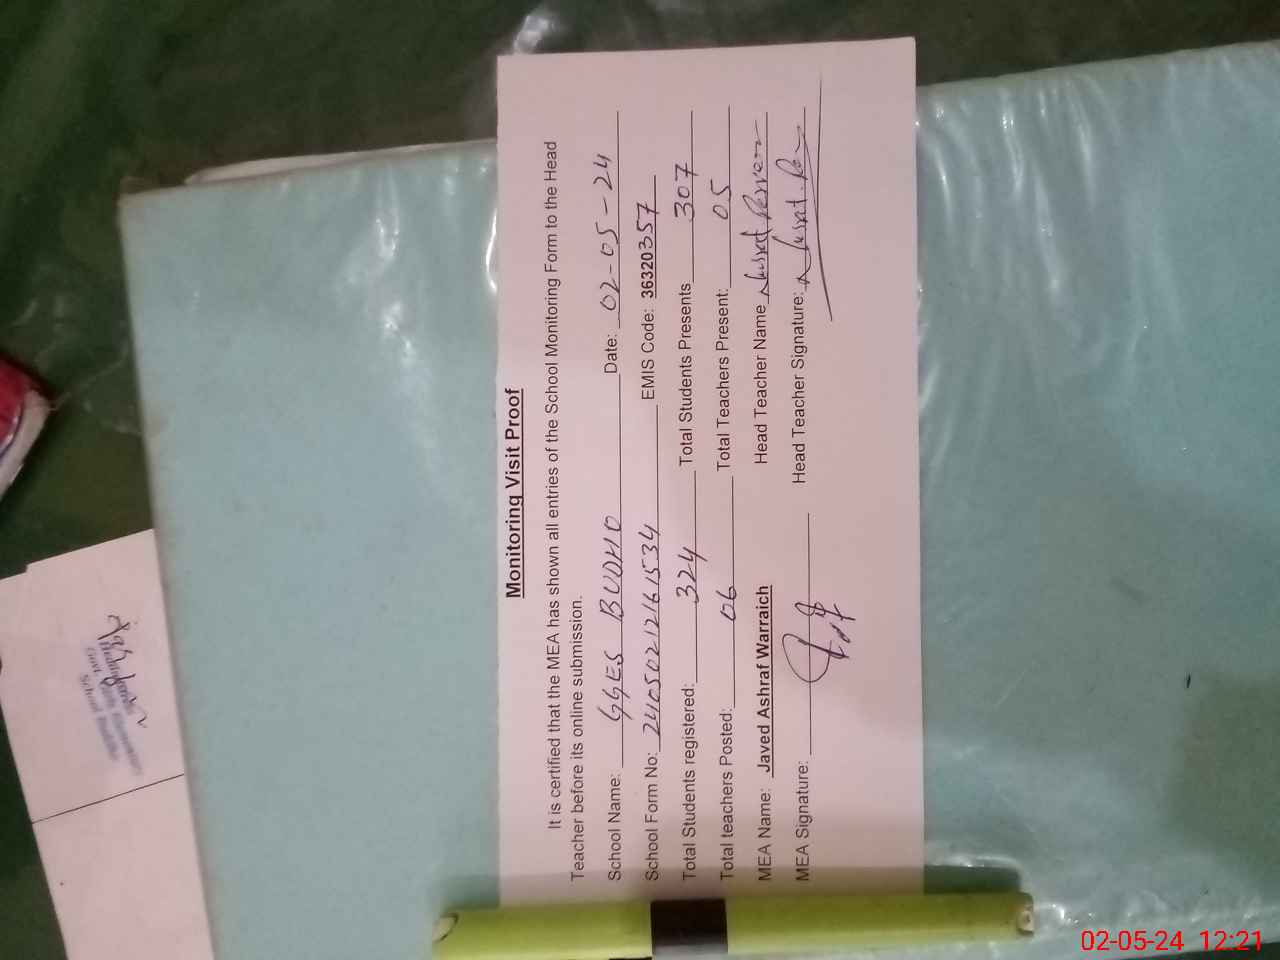 Monitoring Visit Proof
It is certified that the MEA has shown all entries of the School Monitoring Form to the Head
Teacher before its online submission.
School Name: GGES BUDHO Date: 02-05-24
School Form No: 24050212161534 EMIS Code: 36320357
Total Students registered: 324 Total Students Presents 307
Total teachers Posted: 06 Total Teachers Present: 05
MEA Name: Javed Ashraf Warraich Head Teacher Name Nusrat Perveen
MEA Signature: Head Teacher Signature: Nusrat.
02-05-24 12:21